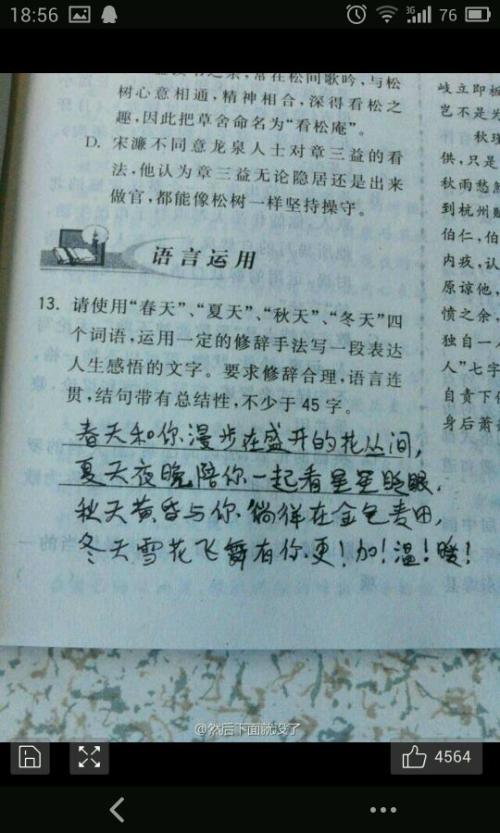 18:56
3G
76
树心意相通,精神相合,深得看松之
趣,因此把草舍命名为“看松庵”。
D. 宋濂不同意龙泉人士对章三益的看
法,他认为章三益无论隐居还是出来
做官,都能像松树一样坚持操守。
语言运用
13. 请使用“春天”、“夏天”、“秋天”、“冬天”四
个词语,运用一定的修辞手法写一段表达
人生感悟的文字。要求修辞合理,语言连
贯,结句带有总结性,不少于 45 字。
春天和你漫步在盛开的花丛间,
夏天夜晚陪你一起看星星眨眼,
秋天黄昏与你徜徉在金色麦田,
冬天雪花飞舞有你更!加!温!暖!
岐立即板
岂不是为
秋瑾
供,只是
秋雨愁煞
到杭州
伯仁,伯
内疚,认
原谅他,
愤之余,
独自一人
人”七字
自责下
身后萧
@然后下面就没了
4564